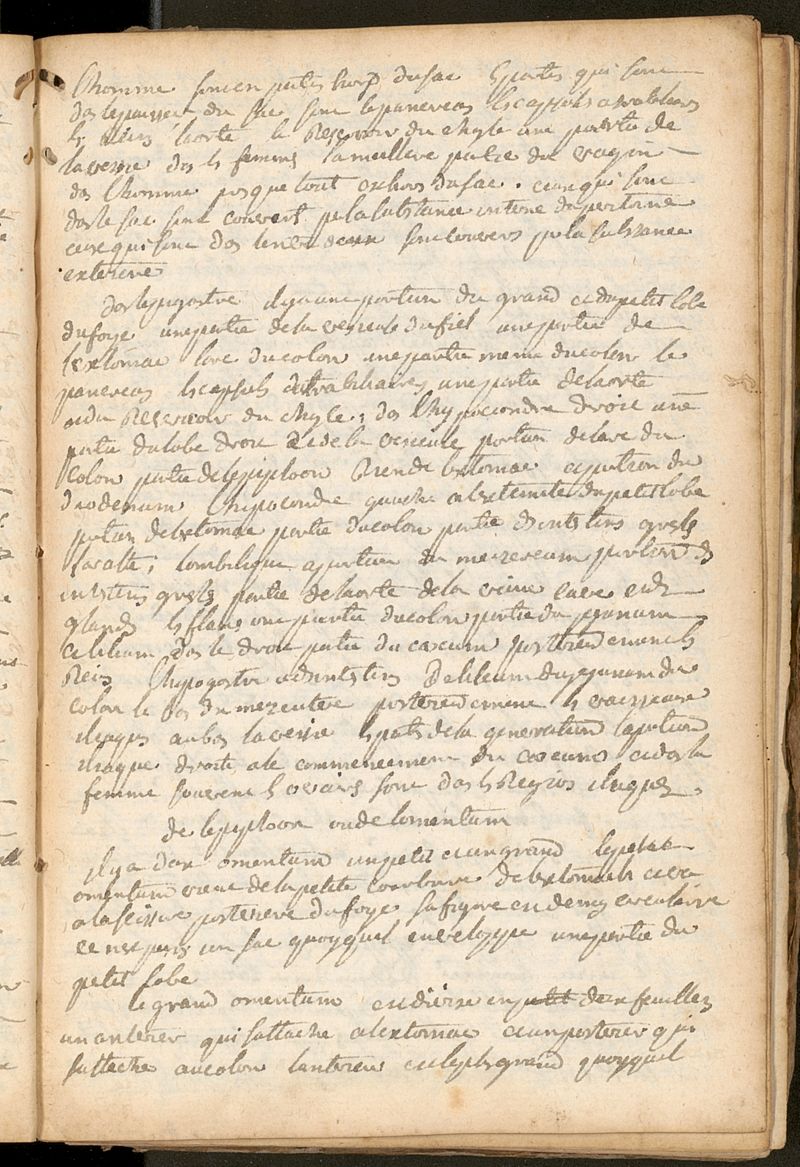 l'homme sont en partie hors du sac les parties qui sont
dans l'epaisseur du sac sont le pancreas les capsules atrabilaires
les reins l'aorte le Reservoir du chyle une partie de
la vessie dans les femmes la meilleure partie du vagin
dans l'homme presque tout en hors du sac. ceux qui sont
dans le sac sont couvert par la substance interne du peritoine
ceux qui sont dans sont couvers par la substance
exterieure
dans l'epigastre il y a une portion du grand et du petit lobe
du foye une partie de la vesicule du fiel une partie de
l'extomac l'arc du colon une partie meme du colon le
pancreas les capsules atrabilaires une partie de l'aorte
et du Reservoir du chyle; dans l'hypocondre droit une
partie du lobe droit et de la vesicule portion de l'arc du
colon partie de l'epiploon l'extomac et portion du
duodenum l'hypocondre gauche a l'extremité du petit lobe
portion de l'extomac partie du colon partie d'intestins gresles
la ratte; l'ombilique a portion du portion des
intestins gresles partie de l'aorte de la veine cave et des
glandes les flancs une partie du colon partie du jejunum
et ileum dans le droit partie du coecum posterieurement les
Reins l'hypogastre a des intestins de l'ileum du jejunum du
colon le bas du mezentere posterieurement les vaisseaux
iliaques au bas la vessie les parties de la generation la portion
iliaque droite a le commencement du coecum et dans la
femme souvent les ovaires sont dans les Regions iliaques.
de l'epiploon ou de l'omentum
il y a deux omentum un petit et un grand le petit
omentum vient de la petite courbure de l'extomach et va
a la scissure posterieure du foye sa figure en demy circulaire
ce n'est pas un sac quoyquil enveloppe une partie du
petit lobe
le grand omentum est divisé en petit deux feuilles
un anterieur qui s'attache a l'extomac et un posterieur qui
s'attache au colon l'anterieur est le plus grand quoyquil